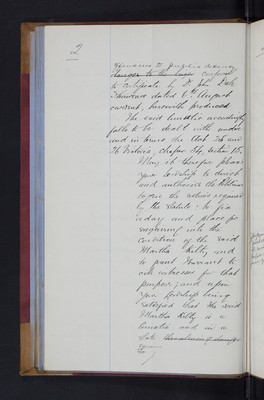 2
danger to the lieges conform
to certificate by Dr John Dale
dated 6th August
current, herewith produced
The said lunatic accordingly
falls to be dealt with under
and in terms the Act 25 and
26 Victoria, chapter 54, section 15.
May it therefore please
your Lordship to direct
and authorise the Petitioner
to give the notices required
by the Statute: To fix
a day and place for
enquiring into the
condition of the said
Martha Kilty and
to grant Warrant to
cite witnesses for that
purpose; and upon
your Lordship being
satisfied that the said
Martha Kilty is a
lunatic and in a
state threatening danger
to